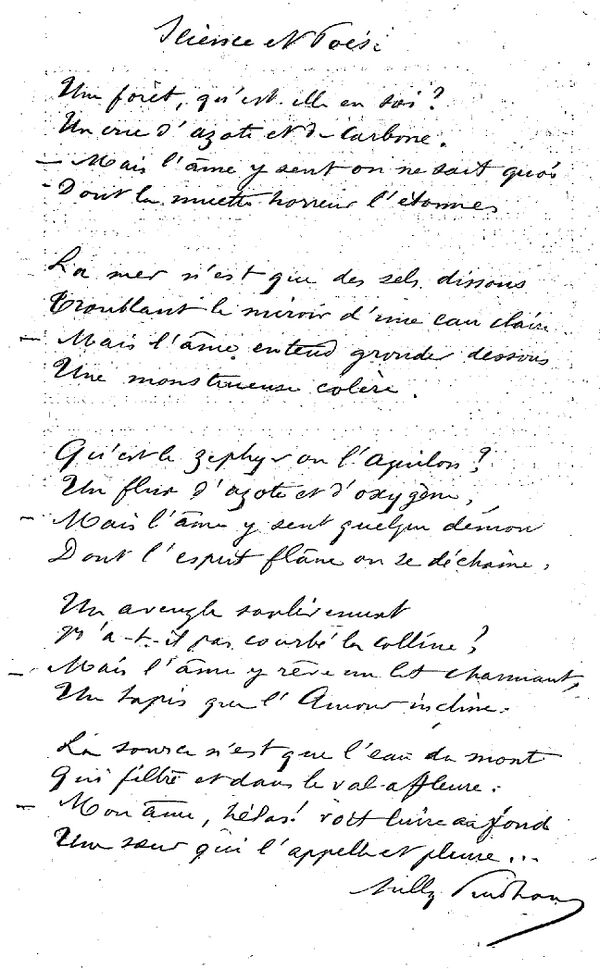 Science et Poésie
Une forêt, qu'est-elle en soi ?
Un  d'azote et de carbone.
— Mais l'âme y sent on ne sait quoi
- Dont la muette horreur l'étonne
La mer n'est que des sels dissous
Troublant le miroir d'une eau claire
— Mais l'âme entend gronder dessous
Une monstrueuse colère.
Qu'est le zéphyr ou l'aquilon ?
Un flux d'azote et d'oxygène,
— Mais l'âme y sent quelque démon
Dont l'esprit flâne ou se déchaîne,
Un aveugle soulèvement
N'a-t-il pas courbé la colline ?
— Mais l'âme y rêve un lit charmant,
Un tapis que l'Amour incline.
La source n'est que l'eau du mont
Qui filtre et dans le val affleure.
— Mon âme, hélas! voit luire au fond
Une sœur qui l'appelle et pleure...
Sully Prudhomme